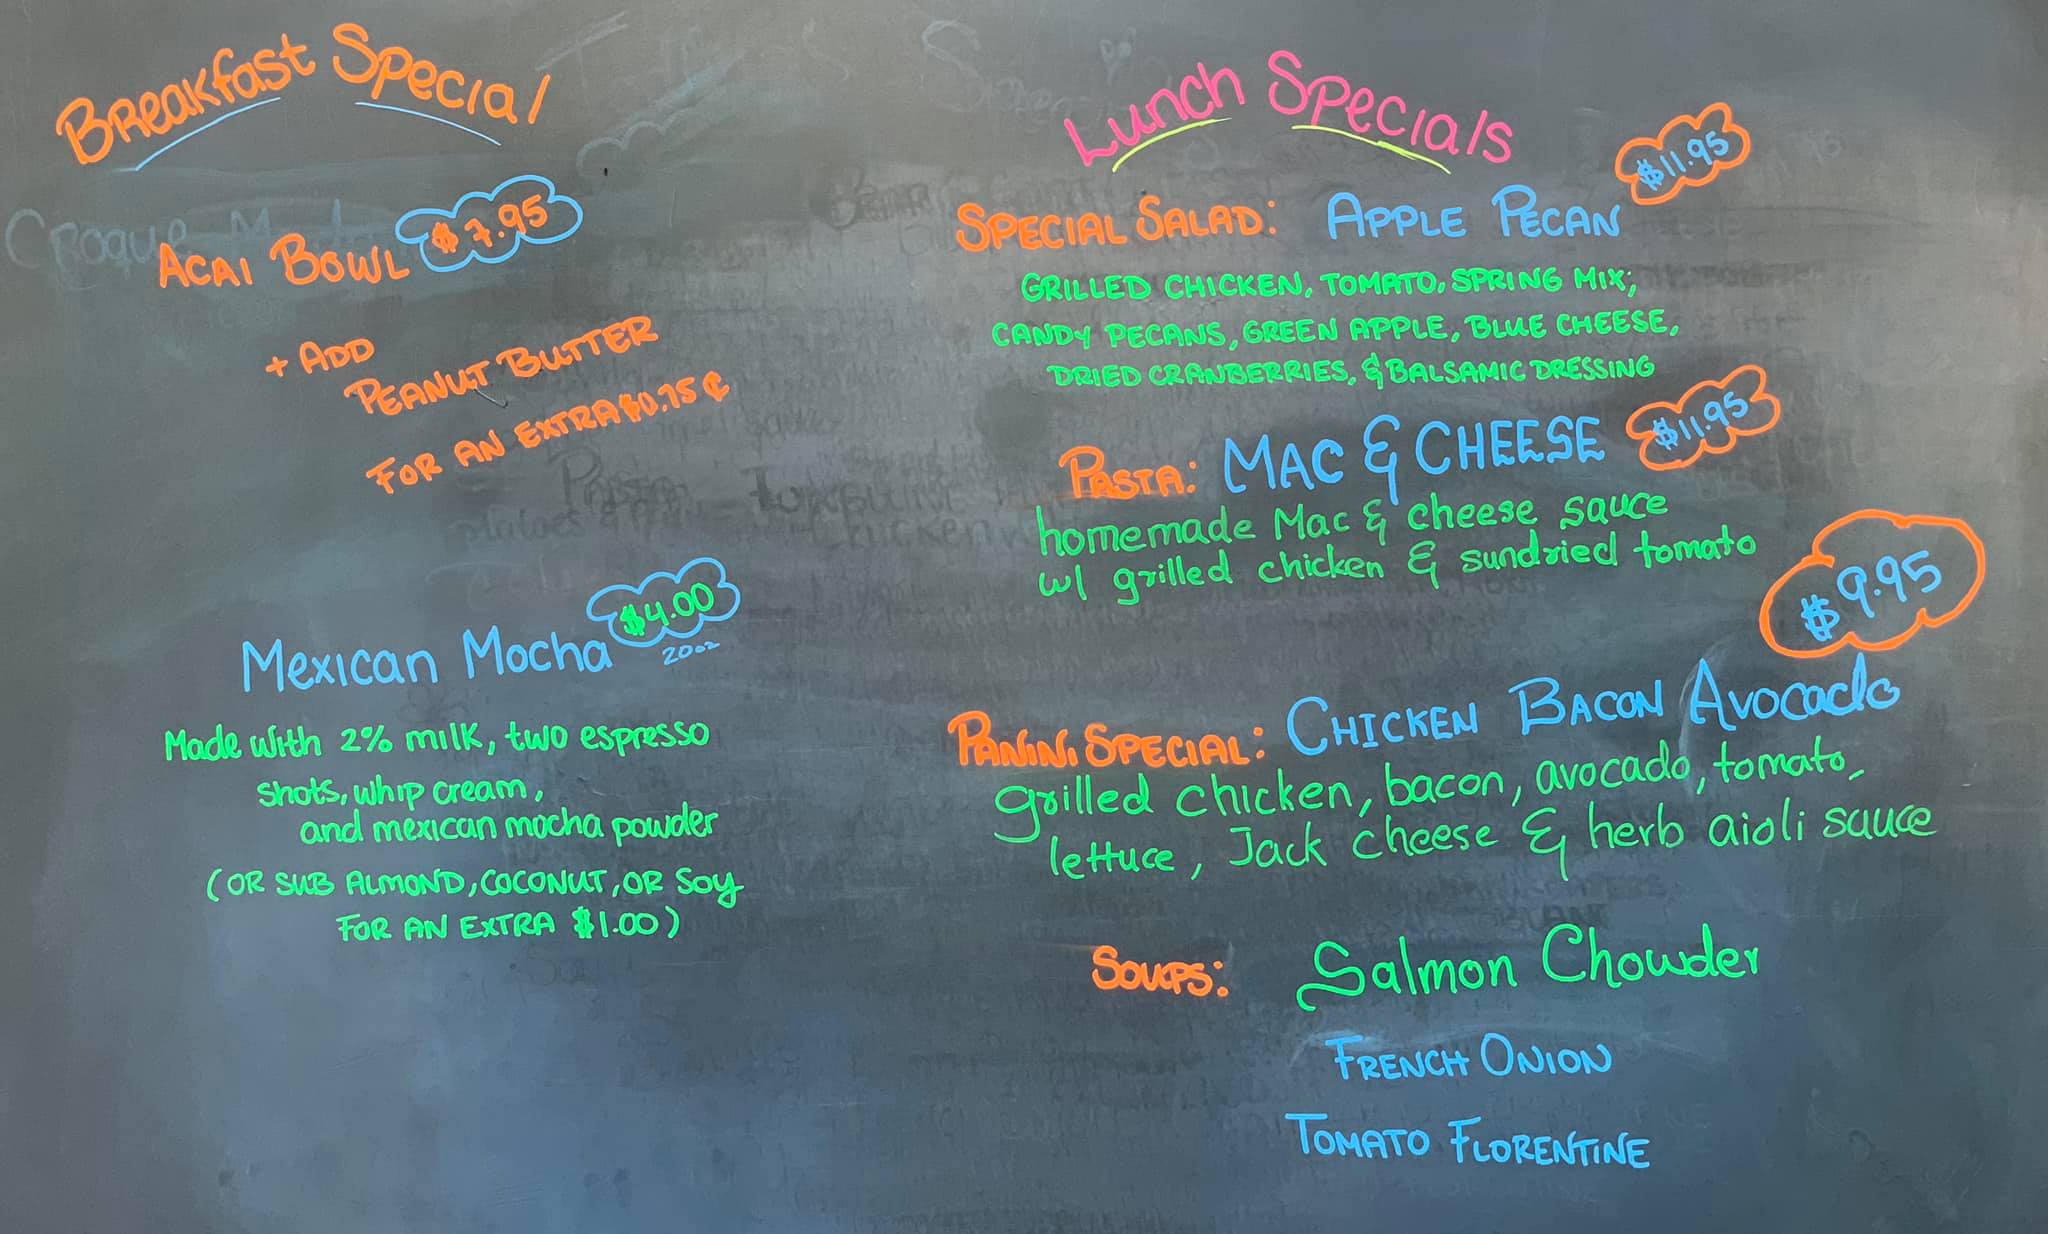 Breakfast Special
Acai Bowl $7.95
+ Add
Peanut Butter
for an extra $0.75¢
Mexican Mocha $4.00
20oz
Made with 2% milk, two espresso
shots, whip cream,
and mexican mocha powder
(or sub almond, coconut, or soy
for an extra $1.00)
Lunch Specials
Special Salad: Apple Pecan $11.95
Grilled chicken, tomato, spring mix,
candy pecans, green apple, blue cheese,
dried cranberries, & balsamic dressing
Pasta: Mac & Cheese $11.95
homemade Mac & cheese sauce
w/ grilled chicken & sundried tomato
$9.95
Panini Special: Chicken Bacon Avocado
grilled chicken, bacon, avocado, tomato,
lettuce, Jack cheese & herb aioli sauce
Soups: Salmon Chowder
French Onion
Tomato Florentine